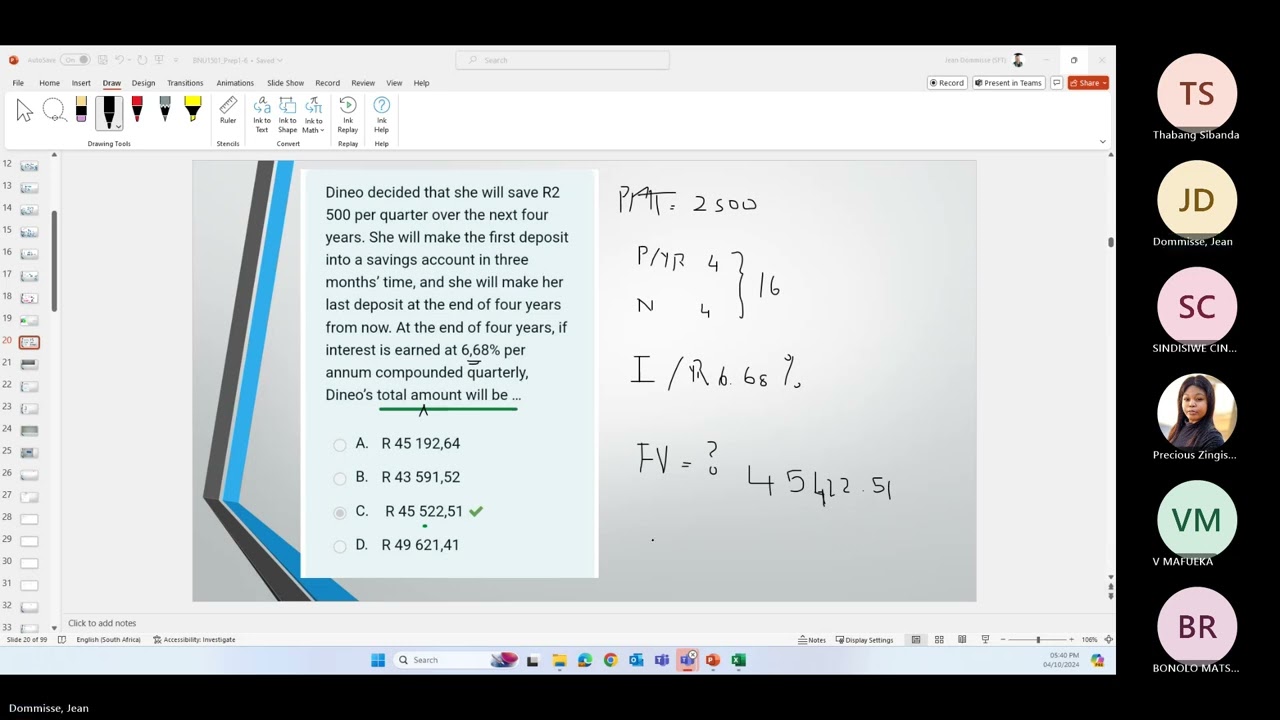 AutoSave On BNU1501_Prep1-6 • Saved Search Jean Dommisse (SFT)
File Home Insert Draw Design Transitions Animations Slide Show Record Review View Help Record Present in Teams Share
Ruler Ink to Text Ink to Shape Ink to Math Ink Replay Ink Help
Drawing Tools Stencils Convert Replay Help
12
13
14
15
16
17
18
19
20
21
22
23
24
25
26
27
28
29
30
31
32
33
Dineo decided that she will save R2
500 per quarter over the next four
years. She will make the first deposit
into a savings account in three
months’ time, and she will make her
last deposit at the end of four years
from now. At the end of four years, if
interest is earned at 6,68% per
annum compounded quarterly,
Dineo’s total amount will be ...
A. R 45 192,64
B. R 43 591,52
C. R 45 522,51
D. R 49 621,41
PMT = 2500
P/YR 4
16
N 4
I/YR 6.68%
FV = ?
45422.51
Click to add notes
Slide 20 of 99 English (South Africa) Accessibility: Investigate Notes Display Settings 106%
Search
05:40 PM
04/10/2024
TS
Thabang Sibanda
JD
Dommisse, Jean
SC
SINDISIWE CIN...
Precious Zingis...
VM
V MAFUEKA
BR
BONOLO MATS...
Dommisse, Jean